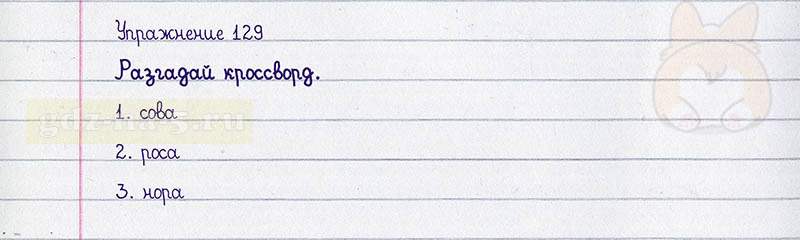 Упражнение 129
Разгадай кроссворд.
1. сова
gdz-na-5.ru
2. роса
3. нора